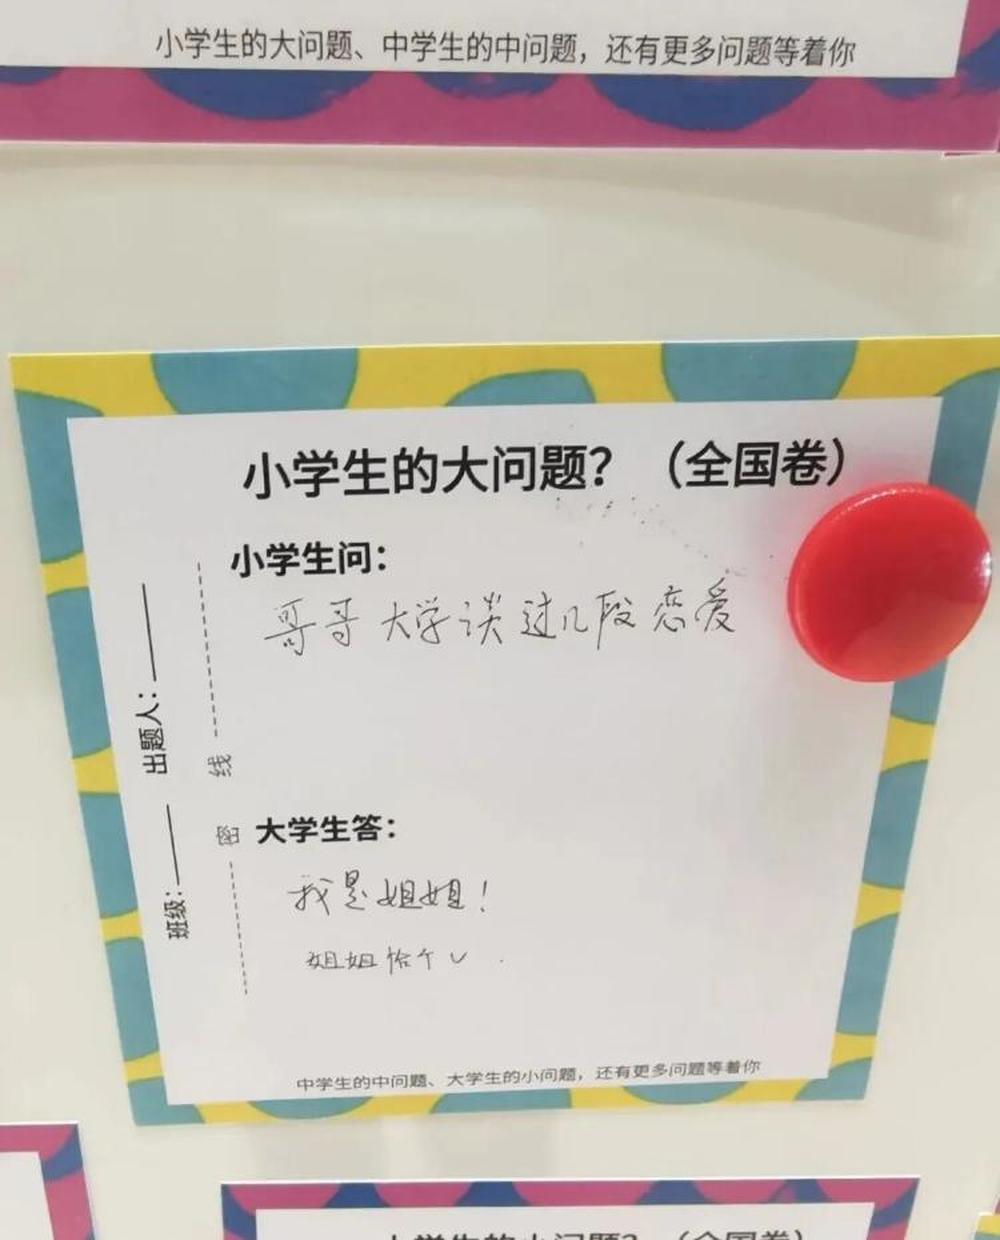 小学生的大问题、中学生的中问题，还有更多问题等着你
小学生的大问题？（全国卷）
小学生问：
哥哥大学谈过几段恋爱
大学生答：
我是姐姐！
姐姐恰个V
出题人：
班级：
线
密
中学生的中问题、大学生的小问题，还有更多问题等着你
小学生的大问题？（全国卷）